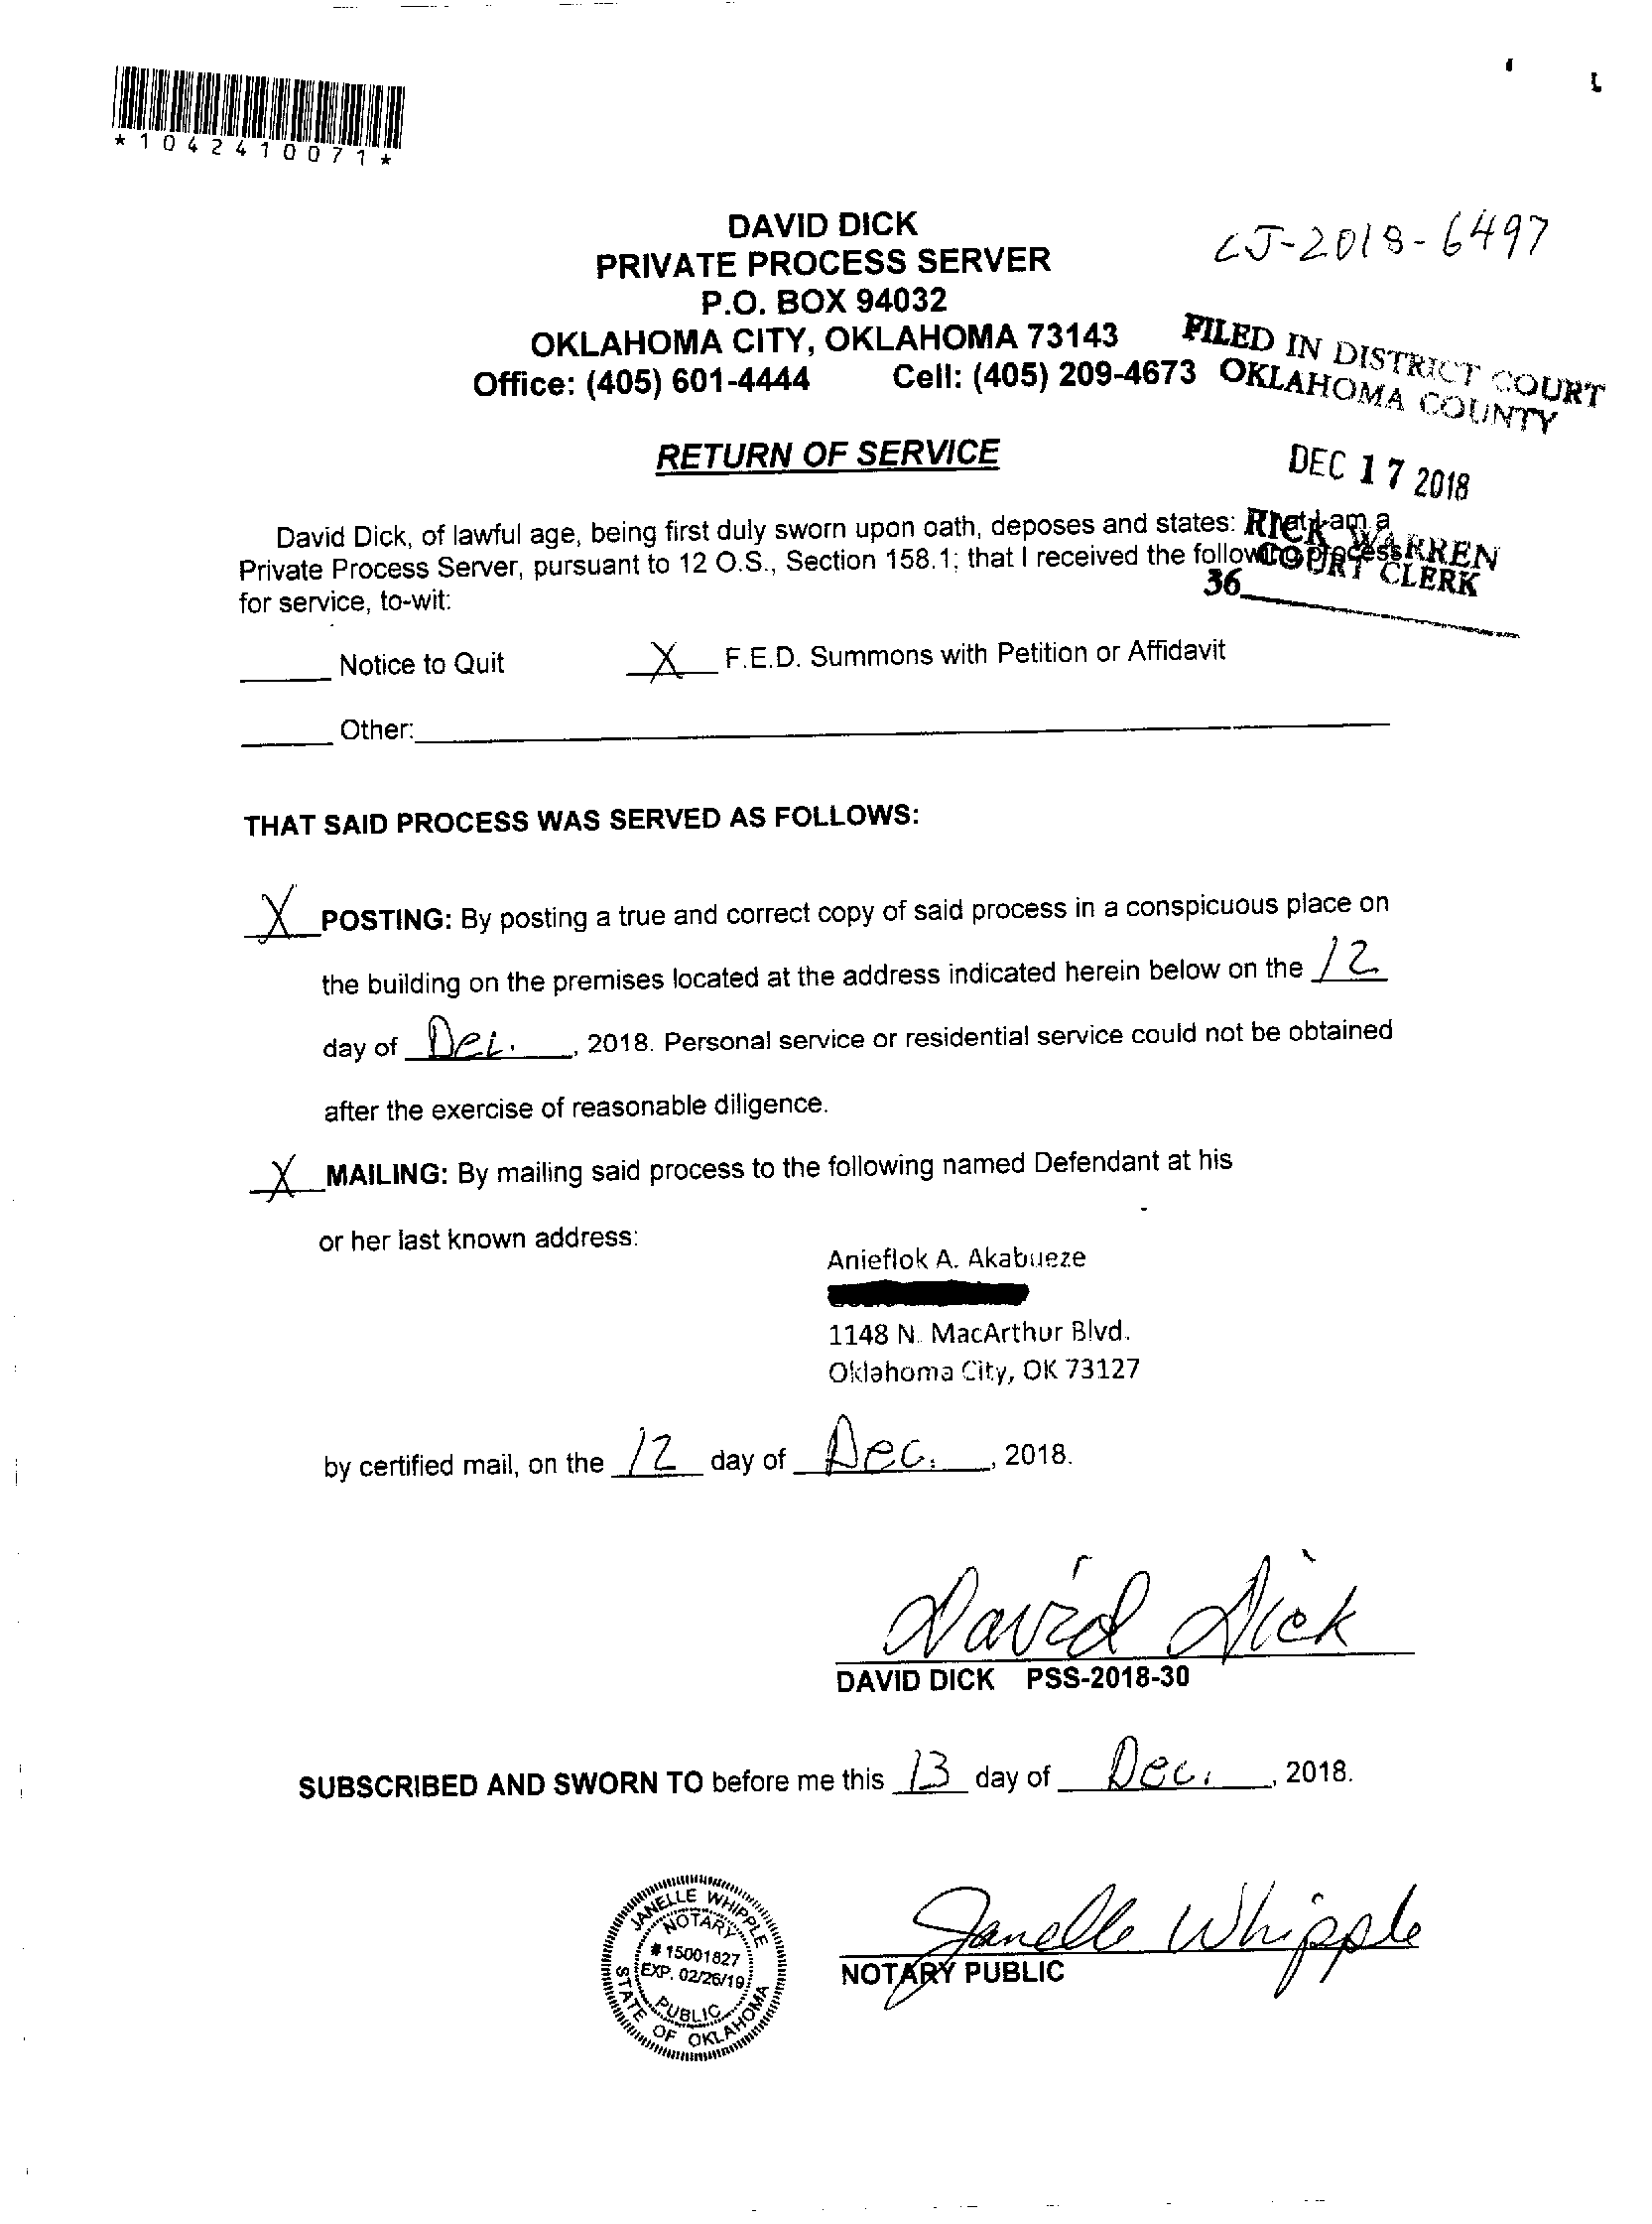 *1042410071*
DAVID DICK
PRIVATE PROCESS SERVER
P.O. BOX 94032
OKLAHOMA CITY, OKLAHOMA 73143
Office: (405) 601-4444 Cell: (405) 209-4673
CJ-2018-6497
FILED IN DISTRICT COURT
OKLAHOMA COUNTY
DEC 17 2018
RICK WARREN
COURT CLERK
36
RETURN OF SERVICE
David Dick, of lawful age, being first duly sworn upon oath, deposes and states: That I am a
Private Process Server, pursuant to 12 O.S., Section 158.1; that I received the following process
for service, to-wit:
Notice to Quit X F.E.D. Summons with Petition or Affidavit
Other:
THAT SAID PROCESS WAS SERVED AS FOLLOWS:
X POSTING: By posting a true and correct copy of said process in a conspicuous place on
the building on the premises located at the address indicated herein below on the 12
day of Dec., 2018. Personal service or residential service could not be obtained
after the exercise of reasonable diligence.
X MAILING: By mailing said process to the following named Defendant at his
or her last known address:
Anieflok A. Akabueze
1148 N. MacArthur Blvd.
Oklahoma City, OK 73127
by certified mail, on the 12 day of Dec., 2018.
David Dick
DAVID DICK PSS-2018-30
SUBSCRIBED AND SWORN TO before me this 13 day of Dec., 2018.
JANELLE WHIPPLE
NOTARY
# 15001827
EXP. 02/26/19
PUBLIC
STATE OF OKLAHOMA
Janelle Whipple
NOTARY PUBLIC